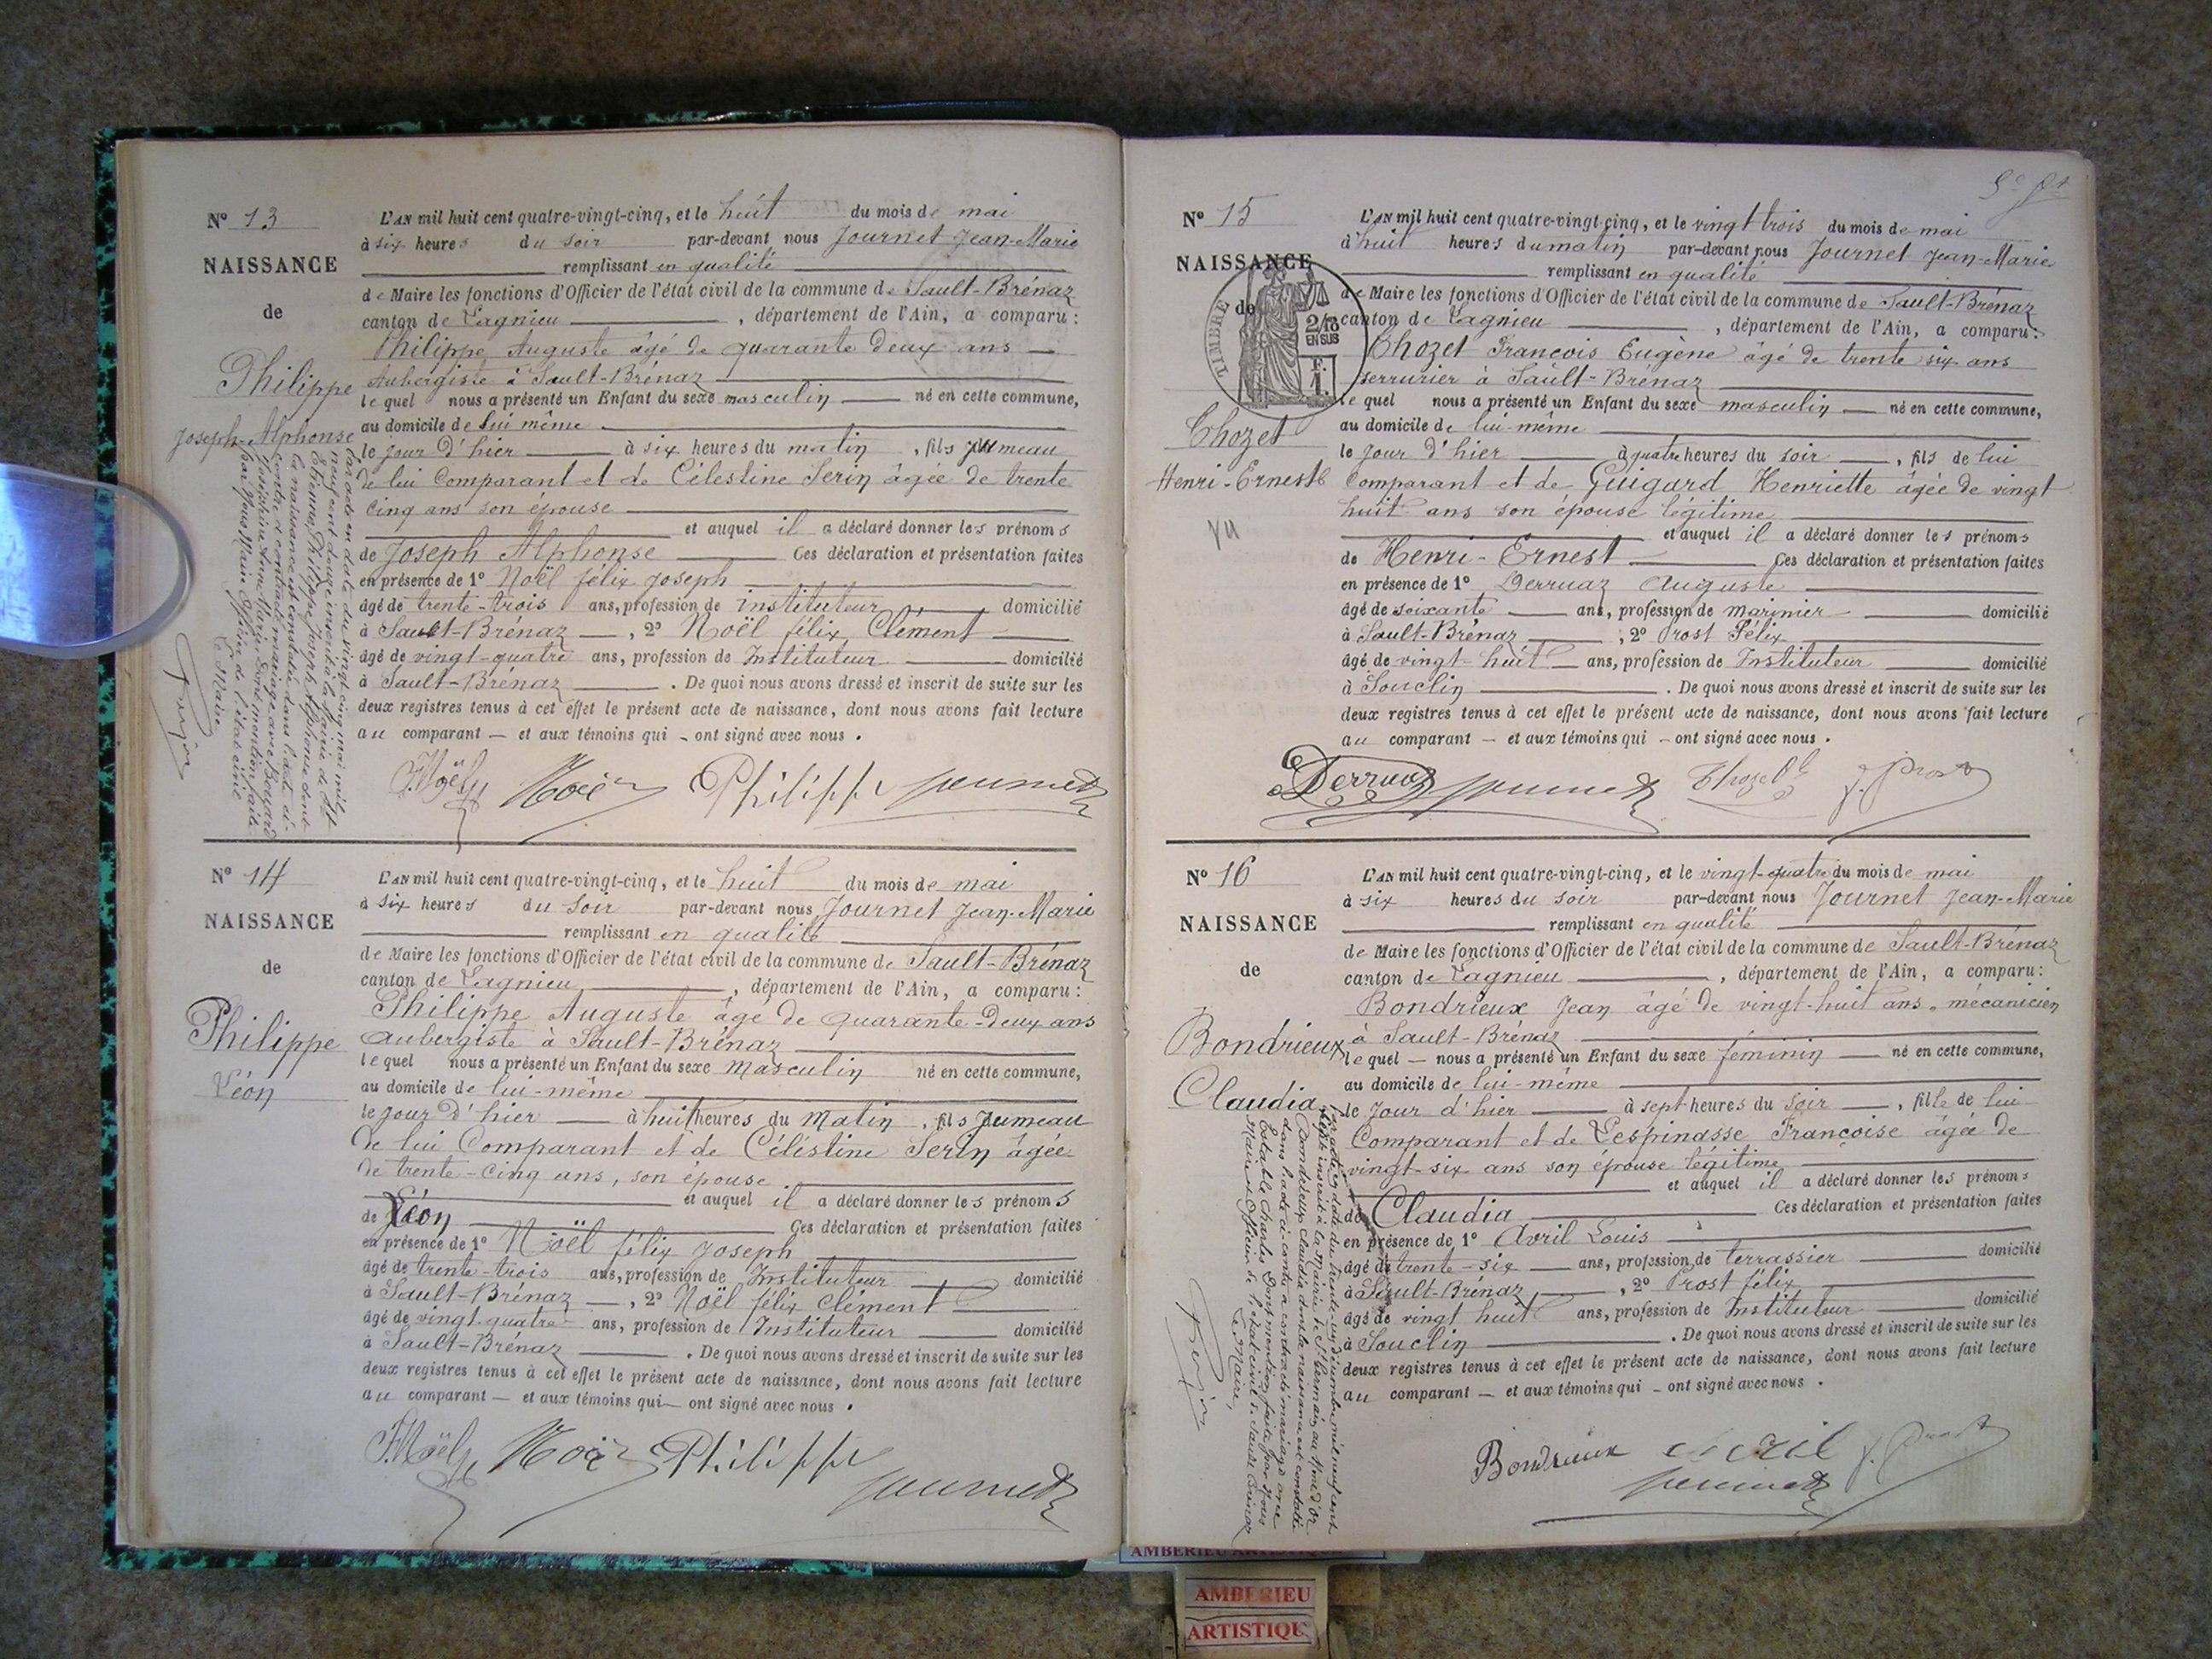 N° 13
NAISSANCE
de
Philippe
Joseph-Alphonse
L'AN mil huit cent quatre-vingt-cinq, et le huit du mois de mai
à six heures du soir par-devant nous Journet Jean-Marie
remplissant en qualité
de Maire les fonctions d'Officier de l'état civil de la commune de Sault-Brénaz
canton de Lagnieu, département de l'Ain, a comparu :
Philippe Auguste âgé de quarante deux ans
Aubergiste à Sault-Brénaz
lequel nous a présenté un Enfant du sexe masculin né en cette commune,
au domicile de lui même
le jour d'hier à six heures du matin, fils jumeau
de lui Comparant et de Célestine Serin âgée de trente
cinq ans son épouse
et auquel il a déclaré donner les prénoms
de Joseph Alphonse Ces déclaration et présentation faites
en présence de 1° Noël félix Joseph
âgé de trente-trois ans, profession de instituteur domicilié
à Sault-Brénaz, 2° Noël félix Clément
âgé de vingt-quatre ans, profession de Instituteur domicilié
à Sault-Brénaz. De quoi nous avons dressé et inscrit de suite sur les
deux registres tenus à cet effet le présent acte de naissance, dont nous avons fait lecture
au comparant et aux témoins qui ont signé avec nous.
Par acte en date du vingt cinq mai mil
neuf cent douze inscrit à la Mairie de St
Etienne, Philippe Joseph Alphonse dont
la naissance est constatée dans l'acte ci-
contre a contracté mariage avec
Joséphine Dont mention faite
par Nous Maire Officier de l'état civil
Le Maire,
F. Noël Noël Philippe Journet
N° 14
NAISSANCE
de
Philippe
Léon
L'AN mil huit cent quatre-vingt-cinq, et le huit du mois de mai
à six heures du soir par-devant nous Journet Jean-Marie
remplissant en qualité
de Maire les fonctions d'Officier de l'état civil de la commune de Sault-Brénaz
canton de Lagnieu, département de l'Ain, a comparu :
Philippe Auguste âgé de quarante-deux ans
aubergiste à Sault-Brénaz
lequel nous a présenté un Enfant du sexe masculin né en cette commune,
au domicile de lui-même
le jour d'hier à huit heures du matin, fils jumeau
de lui Comparant et de Célestine Serin âgée
de trente-cinq ans, son épouse
et auquel il a déclaré donner les prénoms
de Léon Ces déclaration et présentation faites
en présence de 1° Noël félix Joseph
âgé de trente-trois ans, profession de Instituteur domicilié
à Sault-Brénaz, 2° Noël félix Clément
âgé de vingt-quatre ans, profession de Instituteur domicilié
à Sault-Brénaz. De quoi nous avons dressé et inscrit de suite sur les
deux registres tenus à cet effet le présent acte de naissance, dont nous avons fait lecture
au comparant et aux témoins qui ont signé avec nous.
F. Noël Noël Philippe
Journet
N° 15
NAISSANCE
de
TIMBRE
2/10
EN SUS
F.
1.
Chozet
Henri-Ernest
vu
L'AN mil huit cent quatre-vingt-cinq, et le vingt trois du mois de mai
à huit heures du matin par-devant nous Journet Jean-Marie
remplissant en qualité
de Maire les fonctions d'Officier de l'état civil de la commune de Sault-Brénaz
canton de Lagnieu, département de l'Ain, a comparu :
Chozet François Eugène âgé de trente six ans
serrurier à Sault-Brénaz
lequel nous a présenté un Enfant du sexe masculin né en cette commune,
au domicile de lui-même
le jour d'hier à quatre heures du soir, fils de lui
Comparant et de Guigard Henriette âgée de vingt
huit ans son épouse légitime
et auquel il a déclaré donner les prénoms
de Henri-Ernest Ces déclaration et présentation faites
en présence de 1° Derruaz Auguste
âgé de soixante ans, profession de marinier domicilié
à Sault-Brénaz, 2° Prost Félix
âgé de vingt-huit ans, profession de Instituteur domicilié
à Souclin. De quoi nous avons dressé et inscrit de suite sur les
deux registres tenus à cet effet le présent acte de naissance, dont nous avons fait lecture
au comparant et aux témoins qui ont signé avec nous.
Derruaz Journet Chozet f. Prost
N° 16
NAISSANCE
de
Bondrieux
Claudia
L'AN mil huit cent quatre-vingt-cinq, et le vingt-quatre du mois de mai
à six heures du soir par-devant nous Journet Jean-Marie
remplissant en qualité
de Maire les fonctions d'Officier de l'état civil de la commune de Sault-Brénaz
canton de Lagnieu, département de l'Ain, a comparu :
Bondrieux Jean âgé de vingt-huit ans, mécanicien
à Sault-Brénaz
lequel nous a présenté un Enfant du sexe féminin né en cette commune,
au domicile de lui-même
le jour d'hier à sept heures du soir, fille de lui
Comparant et de Lespinasse Françoise âgée de
vingt-six ans son épouse légitime
et auquel il a déclaré donner les prénoms
de Claudia Ces déclaration et présentation faites
en présence de 1° Avril Louis
âgé de trente-six ans, profession de terrassier domicilié
à Sault-Brénaz, 2° Prost félix
âgé de vingt huit ans, profession de Instituteur domicilié
à Souclin. De quoi nous avons dressé et inscrit de suite sur les
deux registres tenus à cet effet le présent acte de naissance, dont nous avons fait lecture
au comparant et aux témoins qui ont signé avec nous.
Par acte en date du décembre mil neuf cent
sept inscrit à la mairie de St Germain au Mont d'Or
Claudia dont la naissance est constatée
dans l'acte ci-contre a contracté mariage avec
Charles Dont mention faite par Nous
Maire et Officier de l'état civil de Sault-Brénaz
Le Maire,
Bondrieux Avril f. Prost
Journet
AMBERIEU ARTISTIQUE
AMBERIEU
ARTISTIQU